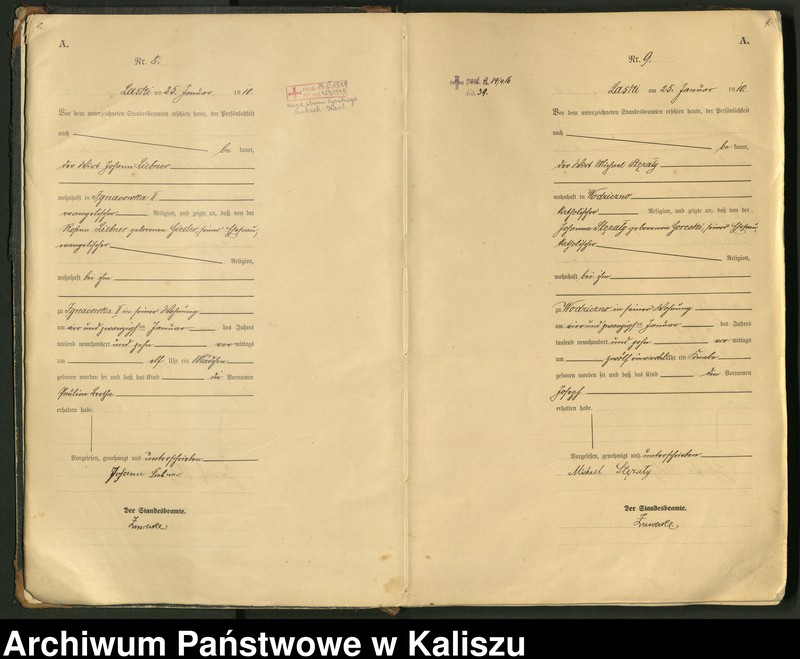 A.
Nr. 8.
Laski am 25. Januar 1910.
Vor dem unterzeichneten Standesbeamten erschien heute, der Persönlichkeit
nach
be kannt,
der Wirt Johann Liebner
wohnhaft in Ignacowka II
evangelischer Religion, und zeigte an, daß von der
Rosina Liebner geborenen Giesler, seiner Ehefrau,
evangelischer
Religion,
wohnhaft bei ihm
zu Ignacowka II in seiner Wohnung
am vier und zwanzigsten Januar des Jahres
tausend neunhundert und zehn vor mittags
um elf Uhr ein Mädchen
geboren worden sei und daß das Kind die Vornamen
Pauline Bertha
erhalten habe.
Vorgelesen, genehmigt und unterschrieben
Johann Liebner
Der Standesbeamte.
A.
Nr. 9.
Laski am 25. Januar 1910.
Vor dem unterzeichneten Standesbeamten erschien heute, der Persönlichkeit
nach
be kannt,
der Wirt Michael Stęzały
wohnhaft in Wodziczno
katholischer Religion, und zeigte an, daß von der
Johanna Stęzały geborenen Gorecki, seiner Ehefrau,
katholischer
Religion,
wohnhaft bei ihm
zu Wodziczno in seiner Wohnung
am vier und zwanzigsten Januar des Jahres
tausend neunhundert und zehn vor mittags
um zwölf ein Knabe
geboren worden sei und daß das Kind den Vornamen
Josef
erhalten habe.
Vorgelesen, genehmigt und unterschrieben
Michael Stęzały
Der Standesbeamte.
Archiwum Państwowe w Kaliszu